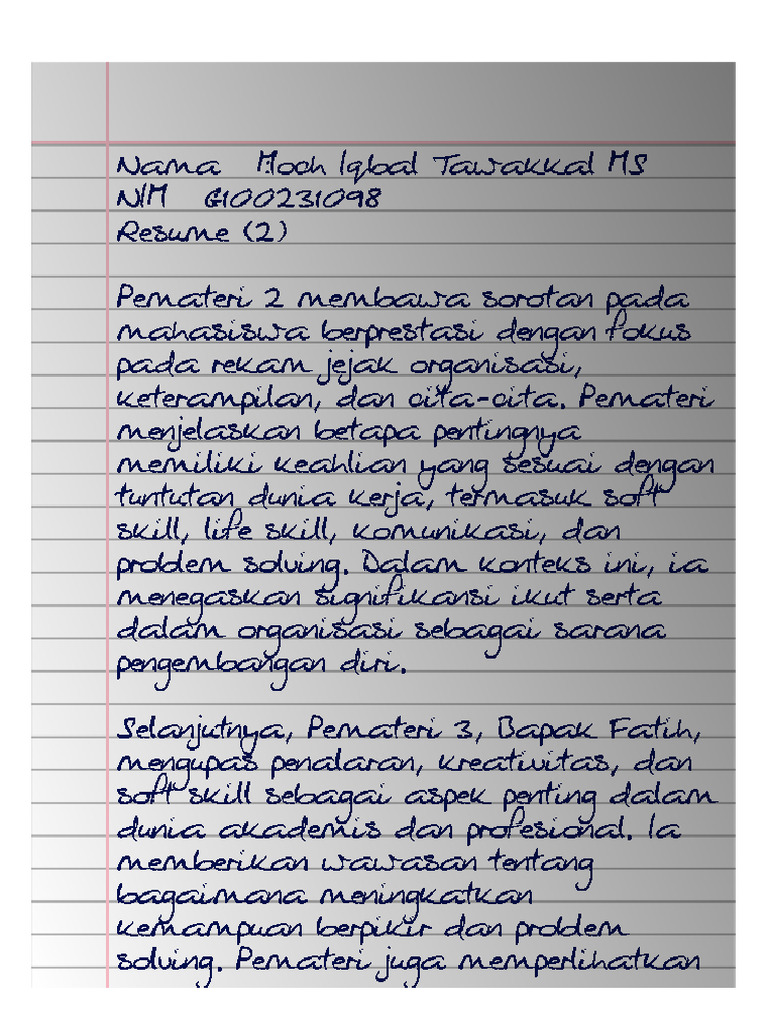 Nama Moch Iqbal Tawakkal MS
NIM G100231098
Resume (2)
Pemateri 2 membawa sorotan pada
mahasiswa berprestasi dengan fokus
pada rekam jejak organisasi,
keterampilan, dan cita-cita. Pemateri
menjelaskan betapa pentingnya
memiliki keahlian yang sesuai dengan
tuntutan dunia kerja, termasuk soft
skill, life skill, komunikasi, dan
problem solving. Dalam konteks ini, ia
menegaskan signifikansi ikut serta
dalam organisasi sebagai sarana
pengembangan diri.
Selanjutnya, Pemateri 3, Bapak Fatih,
mengupas penalaran, kreativitas, dan
soft skill sebagai aspek penting dalam
dunia akademis dan profesional. Ia
memberikan wawasan tentang
bagaimana meningkatkan
kemampuan berpikir dan problem
solving. Pemateri juga memperlihatkan